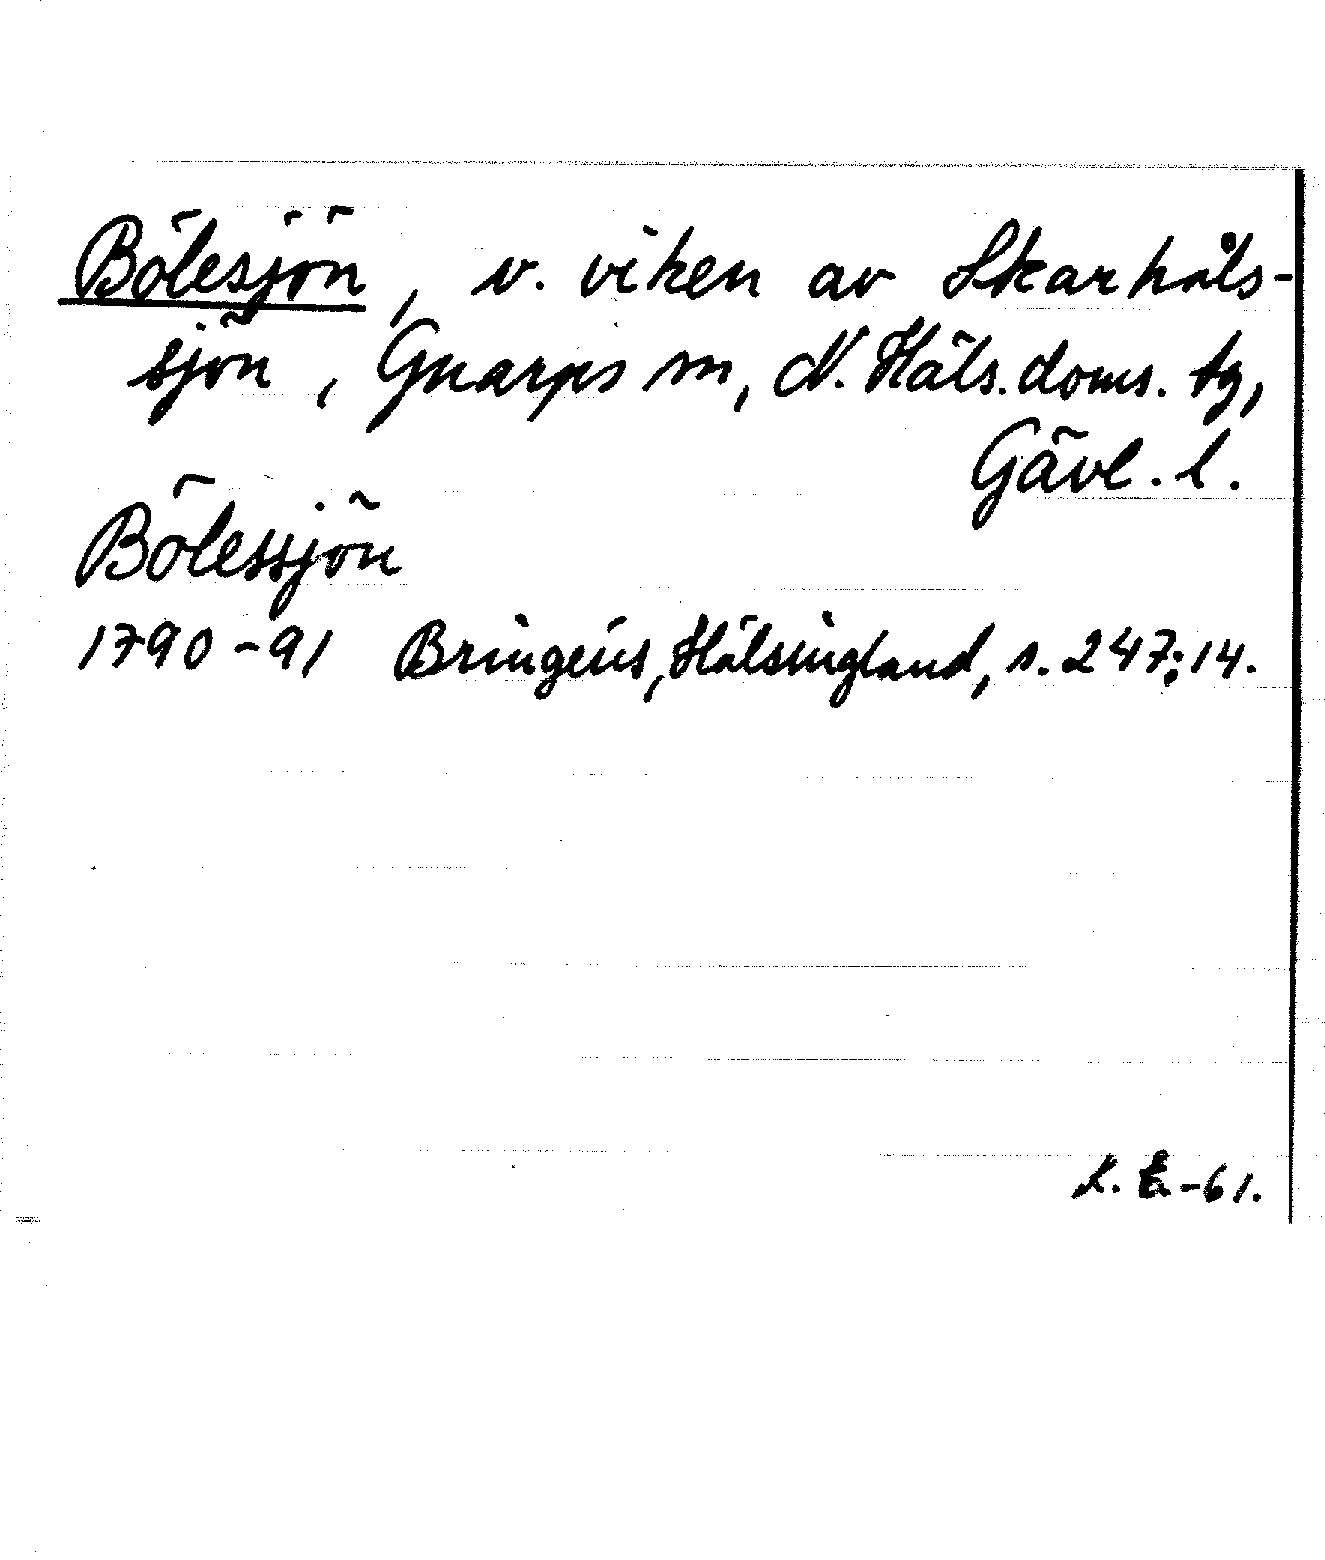 Bölesjön, v. viken av Skarhåls-
sjön, Gnarps sn, N. Häls. doms. tg,
Gävl. l.
Bölessjön
1790-91 Bringéus, Hälsingland, s. 247:14.
L. E. -61.